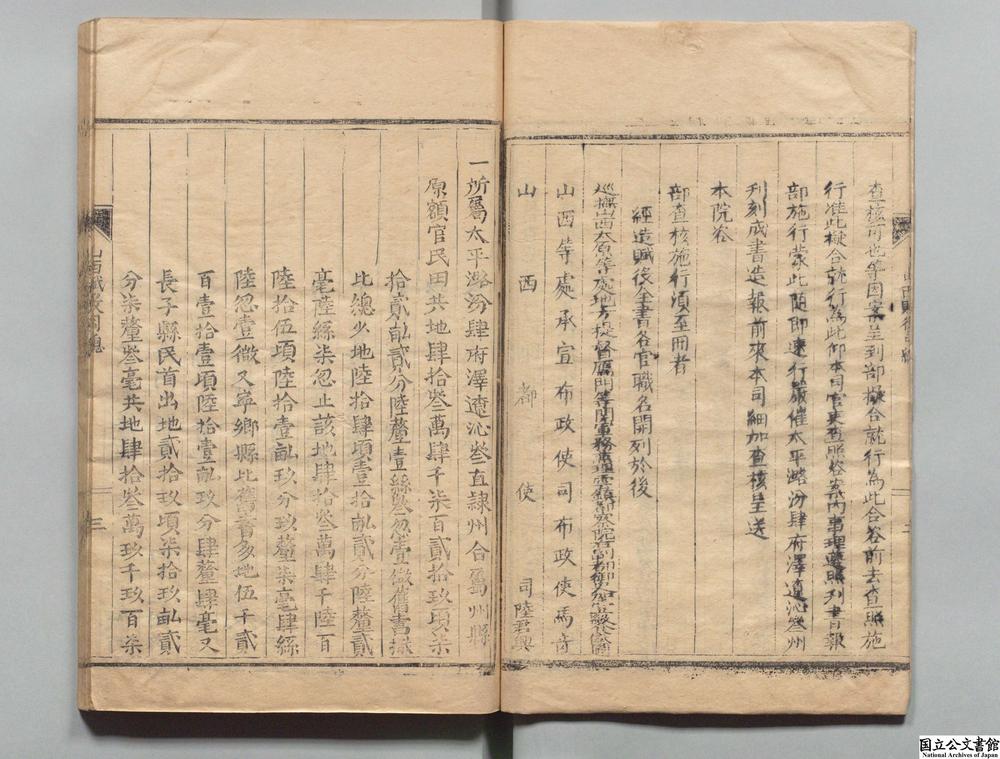 查核可也等因案呈到部擬合就行為此合咨前去查照施
行准此擬合就行為此仰本司官吏查照咨案內事理遵照刊書報
部施行蒙此隨即速行嚴催太平潞汾肆府澤遼沁叁州
刊刻成書造報前來本司細加查核呈送
本院咨
部查核施行須至冊者
經造賦役全書各官職名開列於後
巡撫山西太原等處地方提督鴈門等關軍務
山西等處承宣布政使司布政使馬音
山西都使司陸君興
一所屬太平潞汾肆府澤遼沁叁直隸州合屬州縣
原額官民田共地肆拾叁萬肆千柒百貳拾玖頃柒
拾貳畝貳分陸釐壹絲叁忽壹微舊書據
比總少地陸拾肆頃壹拾畝貳分陸釐貳
毫陸絲柒忽止該地肆拾叁萬肆千陸百
陸拾伍頃陸拾壹畝玖分玖釐柒毫肆絲
陸忽壹微又寧鄉縣比舊書多地伍千貳
百壹拾壹頃陸拾壹畝玖分肆釐肆毫又
長子縣民首出地貳拾玖頃柒拾玖畝貳
分柒釐叁毫共地肆拾叁萬玖千玖百柒
山西賦役間總
三
国立公文書館
National Archives of Japan